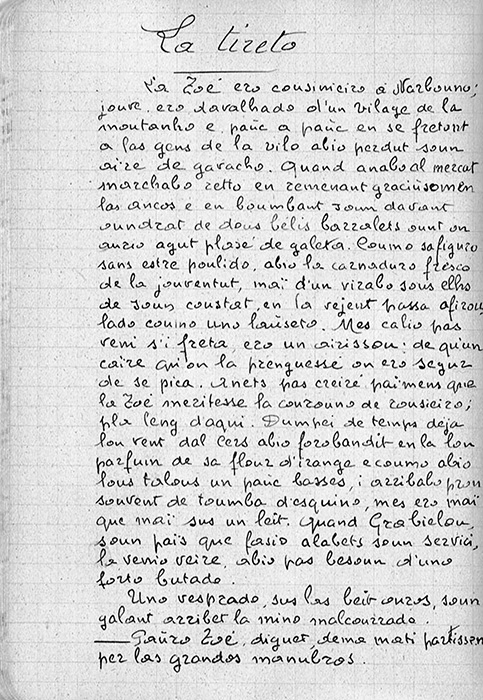 La tireto
La Zoé ero cousinieiro à Narbouno;
jouve, ero davalhado d'un vilage de la
mountanho e, pauc a pauc en se fretont
a las gens de la vilo abio perdut soun
aire de gavacho. Quand anabo al mercat
marchabo retto en remenant graciüsomen
las ancos e en boumbant soun davant
oundrat de dous bélis barralets ount on
aurio agut plasé de galeta. Coumo safiguro
sans estre poulido, abio la carnaduro fresco
de la jouventut, maï d'un virabo sous elhs
de soun coustat, en la vejent passa afirou
lado coumo uno lauseto. Mes calio pas
veni s'i freta, ero un airissou: de qu'un
caire qu'on la prenguesse on ero segur
de se pica. Anets pas creire païmens que
la Zoé meritesse la courouno de rousieiro;
pla leng d'aqui. Dumpei de temps deja
lou vent dal Cers abio forobandit en la lou
parfum de sa flour d'irange e coumo abio
lous talous un pauc basses, i arribabo prou
souvent de toumba d'esquino, mes ero maï
que maï sus un leit. Quand Grabielou,
soun païs que fasio alabets soun servici,
la venio veire, abio pas besoun d'uno
forto butado.
Uno vesprado, sus las beit ouros, soun
galant arribet la mino malcourado.
— Pauro Zoé, diguet, dema mati partissen
per las grandos manubros.